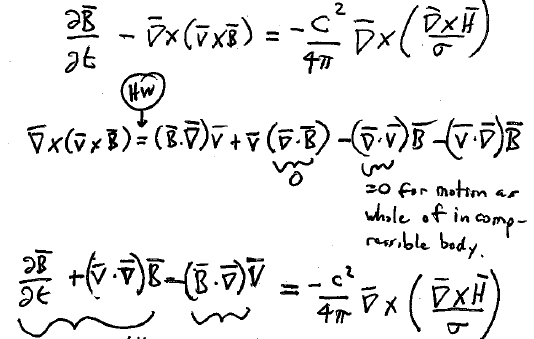 ∂B̄/∂t − ∇̄×(v̄×B̄) = −c²/4π ∇̄×(∇̄×H̄/σ)
HW
∇̄×(v̄×B̄) = (B̄·∇̄)v̄ + v̄(∇̄·B̄) − (∇̄·v̄)B̄ − (v̄·∇̄)B̄
0
=0 for motion as
whole of incomp-
ressible body.
∂B̄/∂t + (v̄·∇̄)B̄ − (B̄·∇̄)v̄ = −c²/4π ∇̄×(∇̄×H̄/σ)